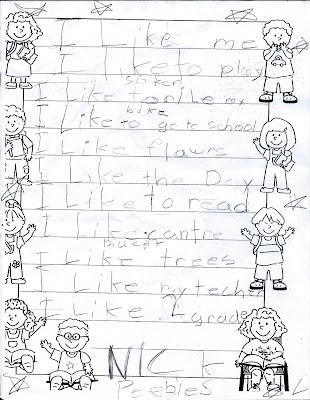 I Like me
I Like to play
socer
I Like to rile my
bike
I Like to go to school
I Like flawrs
I Like the Day
I Like to read
I Like cantre
muesic
I Like trees
I Like my techer
I Like 2 grade
NICk
Peebles